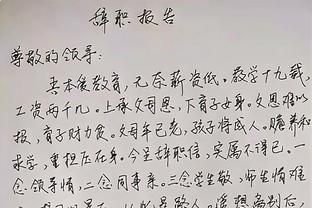 辞职报告
尊敬的领导:
吾本俊教育,无奈薪资低。教学十九载,
工资两千几。上承父母恩,下育子女身。父恩难以
报,育子财力贫。父母年已老,孩子将成人。赡养和
求学,重担在我身。今呈辞职信,实属不得已。一
念领导情,二念同事亲。三念学生敬,师生情难